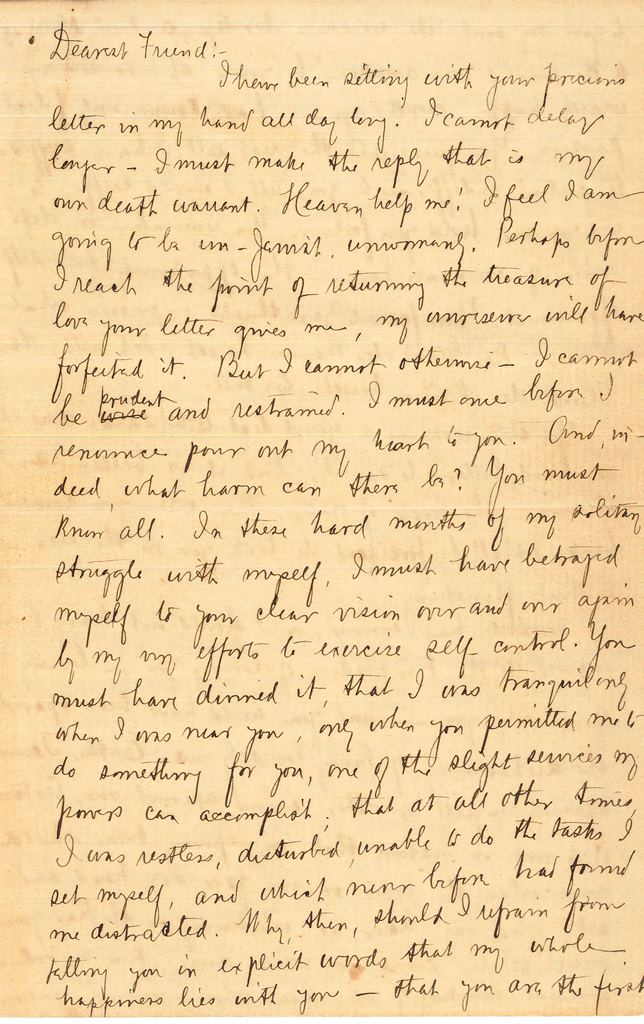 Dearest Friend:-
I have been sitting with your precious
letter in my hand all day long. I cannot delay
longer - I must make the reply that is my
own death warrant. Heaven help me! I feel I am
going to be un-Jewish, unwomanly. Perhaps before
I reach the point of returning the treasure of
love your letter gives me, my unreserve will have
forfeited it. But I cannot otherwise - I cannot
be wise prudent and restrained. I must once before I
renounce pour out my heart to you. And, in-
deed, what harm can there be? You must
know all. In these hard months of my solitary
struggle with myself, I must have betrayed
myself to your clear vision over and over again
by my very efforts to exercise self-control. You
must have divined it, that I was tranquil only
when I was near you, only when you permitted me to
do something for you, one of the slight services my
powers can accomplish; that at all other times,
I was restless, disturbed, unable to do the tasks I
set myself, and which never before had found
me distracted. Why, then, should I refrain from
telling you in explicit words that my whole
happiness lies with you - that you are the first